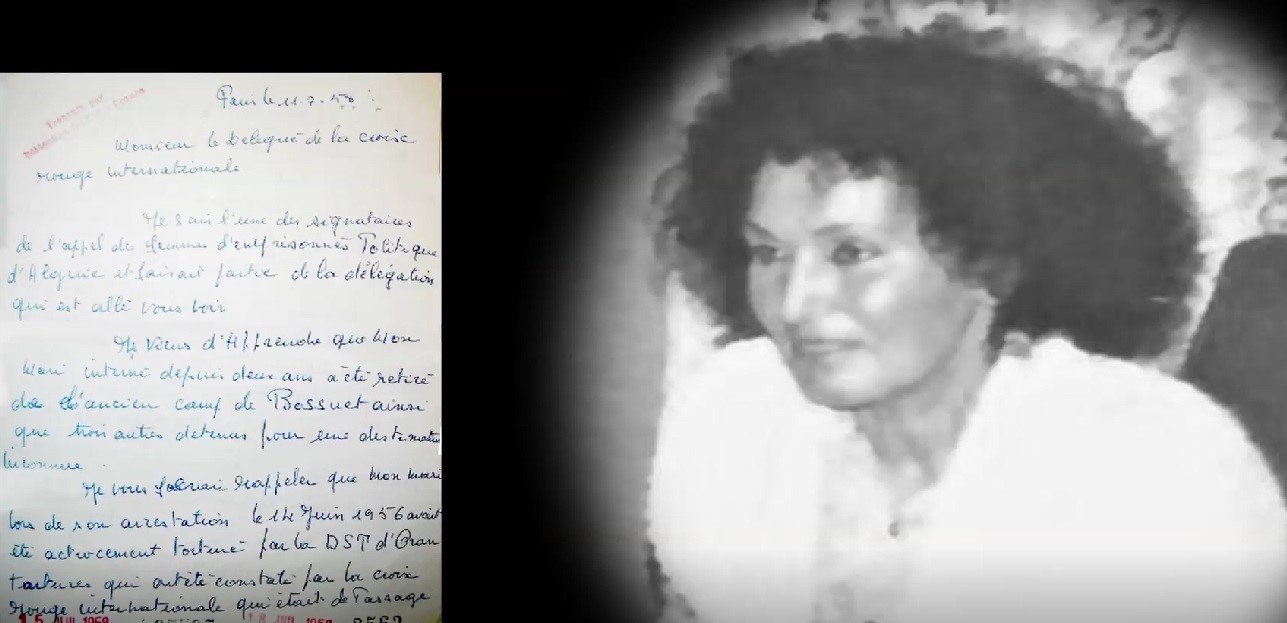 Paris le 11.7.58
Monsieur le Délégué de la croix
rouge internationale
Je suis l'une des signataires
de l'appel des femmes d'emprisonnés Politique
d'Algérie et faisait partie de la délégation
qui est allé vous voir
Je viens d'Apprendre que mon
mari interné depuis deux ans a été retiré
de l'ancien camp de Bossuet ainsi
que trois autres detenus pour une destination
inconnue.
Je vous rappeler que mon mari
lors de son arrestation le Juin 1956 avait
été actrocement torturé par la DST d'Oran
tortures qui ont été constaté par la croix
rouge internationale qui était de Passage